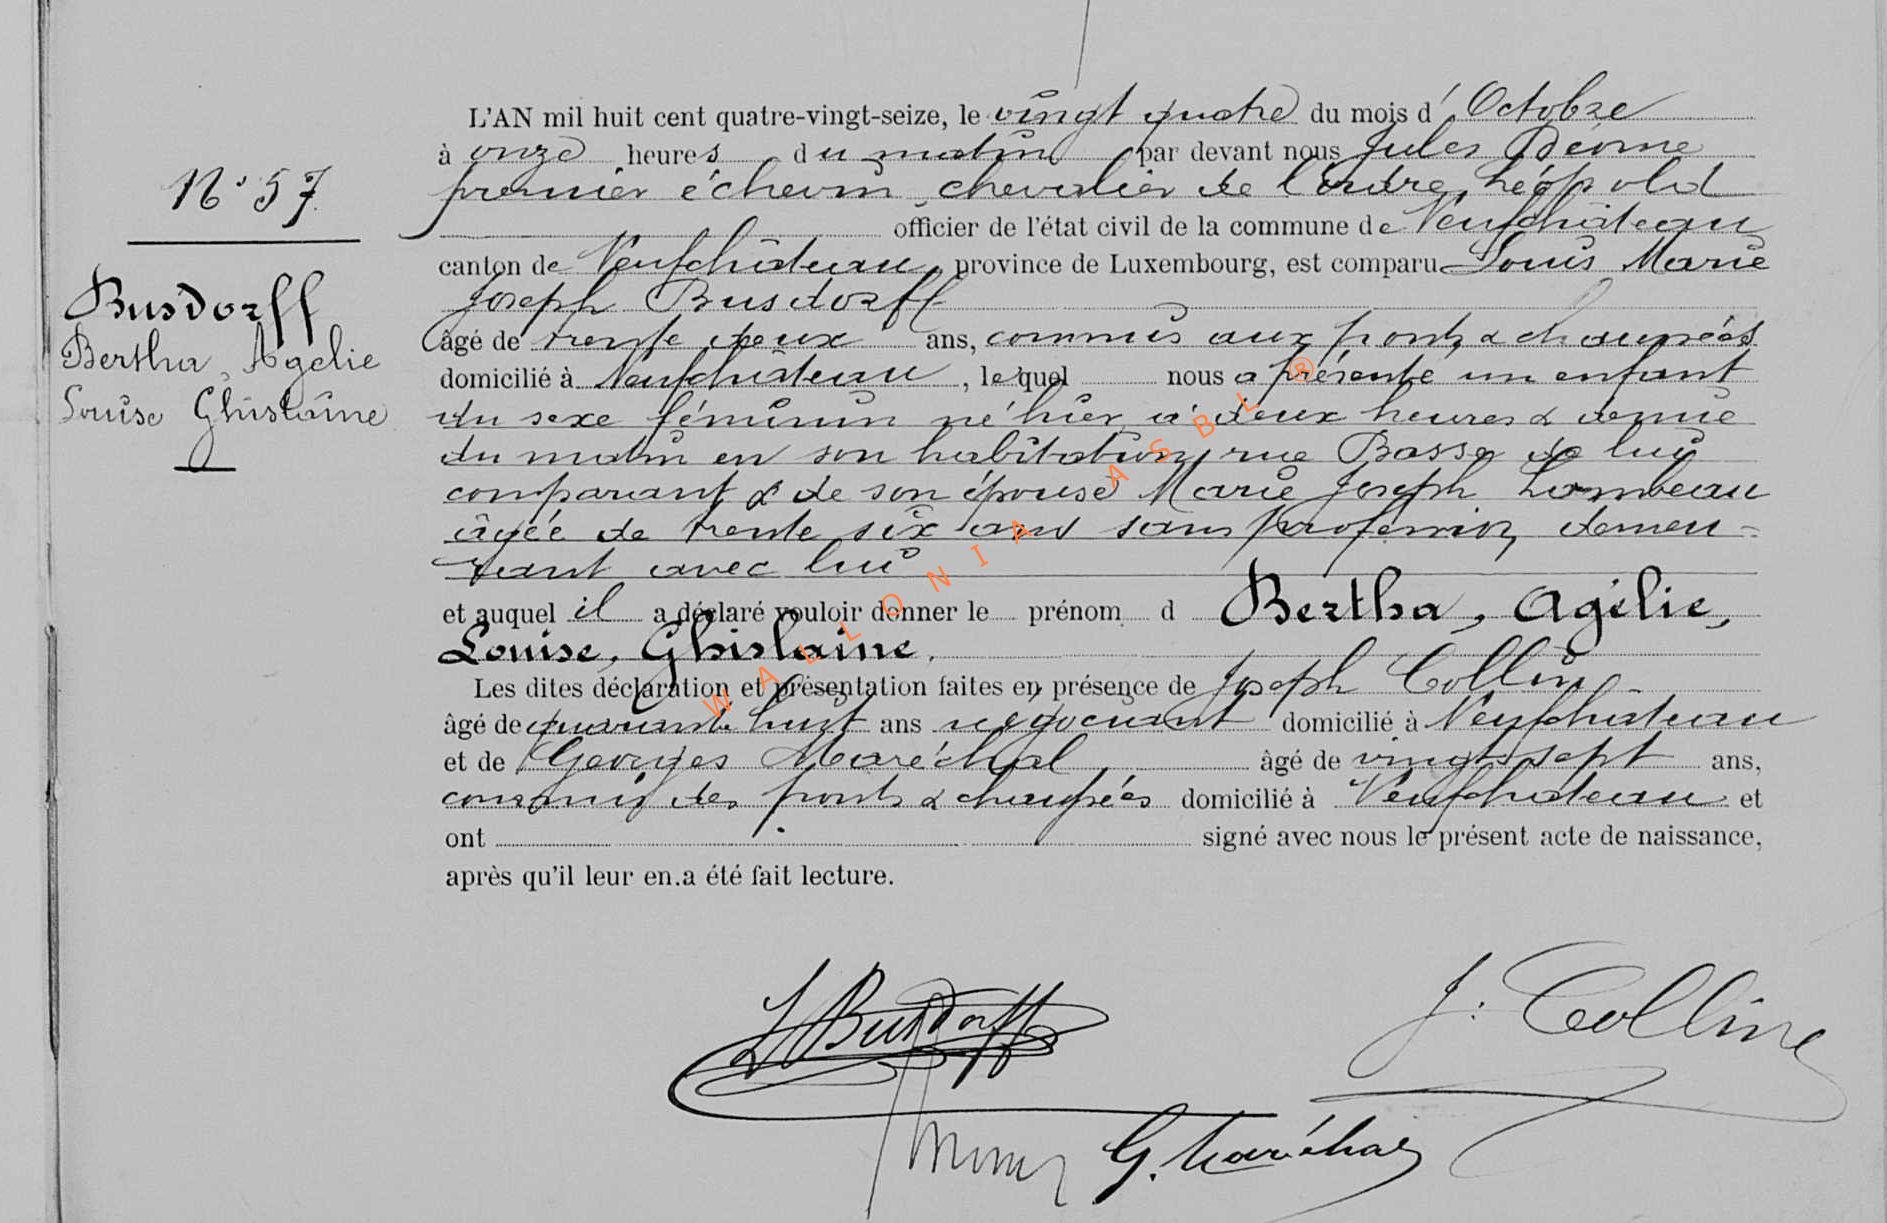 L'AN mil huit cent quatre-vingt-seize, le vingt quatre du mois d' Octobre
à onze heures du matin par devant nous Jules
premier échevin, chevalier de l'ordre Léopold
officier de l'état civil de la commune de Neufchâteau
canton de Neufchâteau, province de Luxembourg, est comparu Louis Marie
Joseph Busdorff
âgé de trente deux ans, commis aux ponts & chaussées
domicilié à Neufchâteau, lequel nous a présenté un enfant
du sexe féminin né hier à deux heures & demie
du matin en son habitation, rue Basse de lui
comparant & de son épouse Marie Joseph Lambeau
âgée de trente six ans sans profession, demeu-
rant avec lui
et auquel il a déclaré vouloir donner le prénom d Bertha, Agélie,
Louise, Ghislaine.
Les dites déclaration et présentation faites en présence de Joseph Collin
âgé de quarante huit ans négociant domicilié à Neufchateau
et de Georges Maréchal âgé de vingt sept ans,
commis des ponts & chaussées domicilié à Neufchateau et
ont signé avec nous le présent acte de naissance,
après qu'il leur en.a été fait lecture.
N° 57
Busdorff
Bertha, Agélie
Louise Ghislaine
L Busdorff
J. Colline
G. Maréchal
WALLONIA ASBL ®